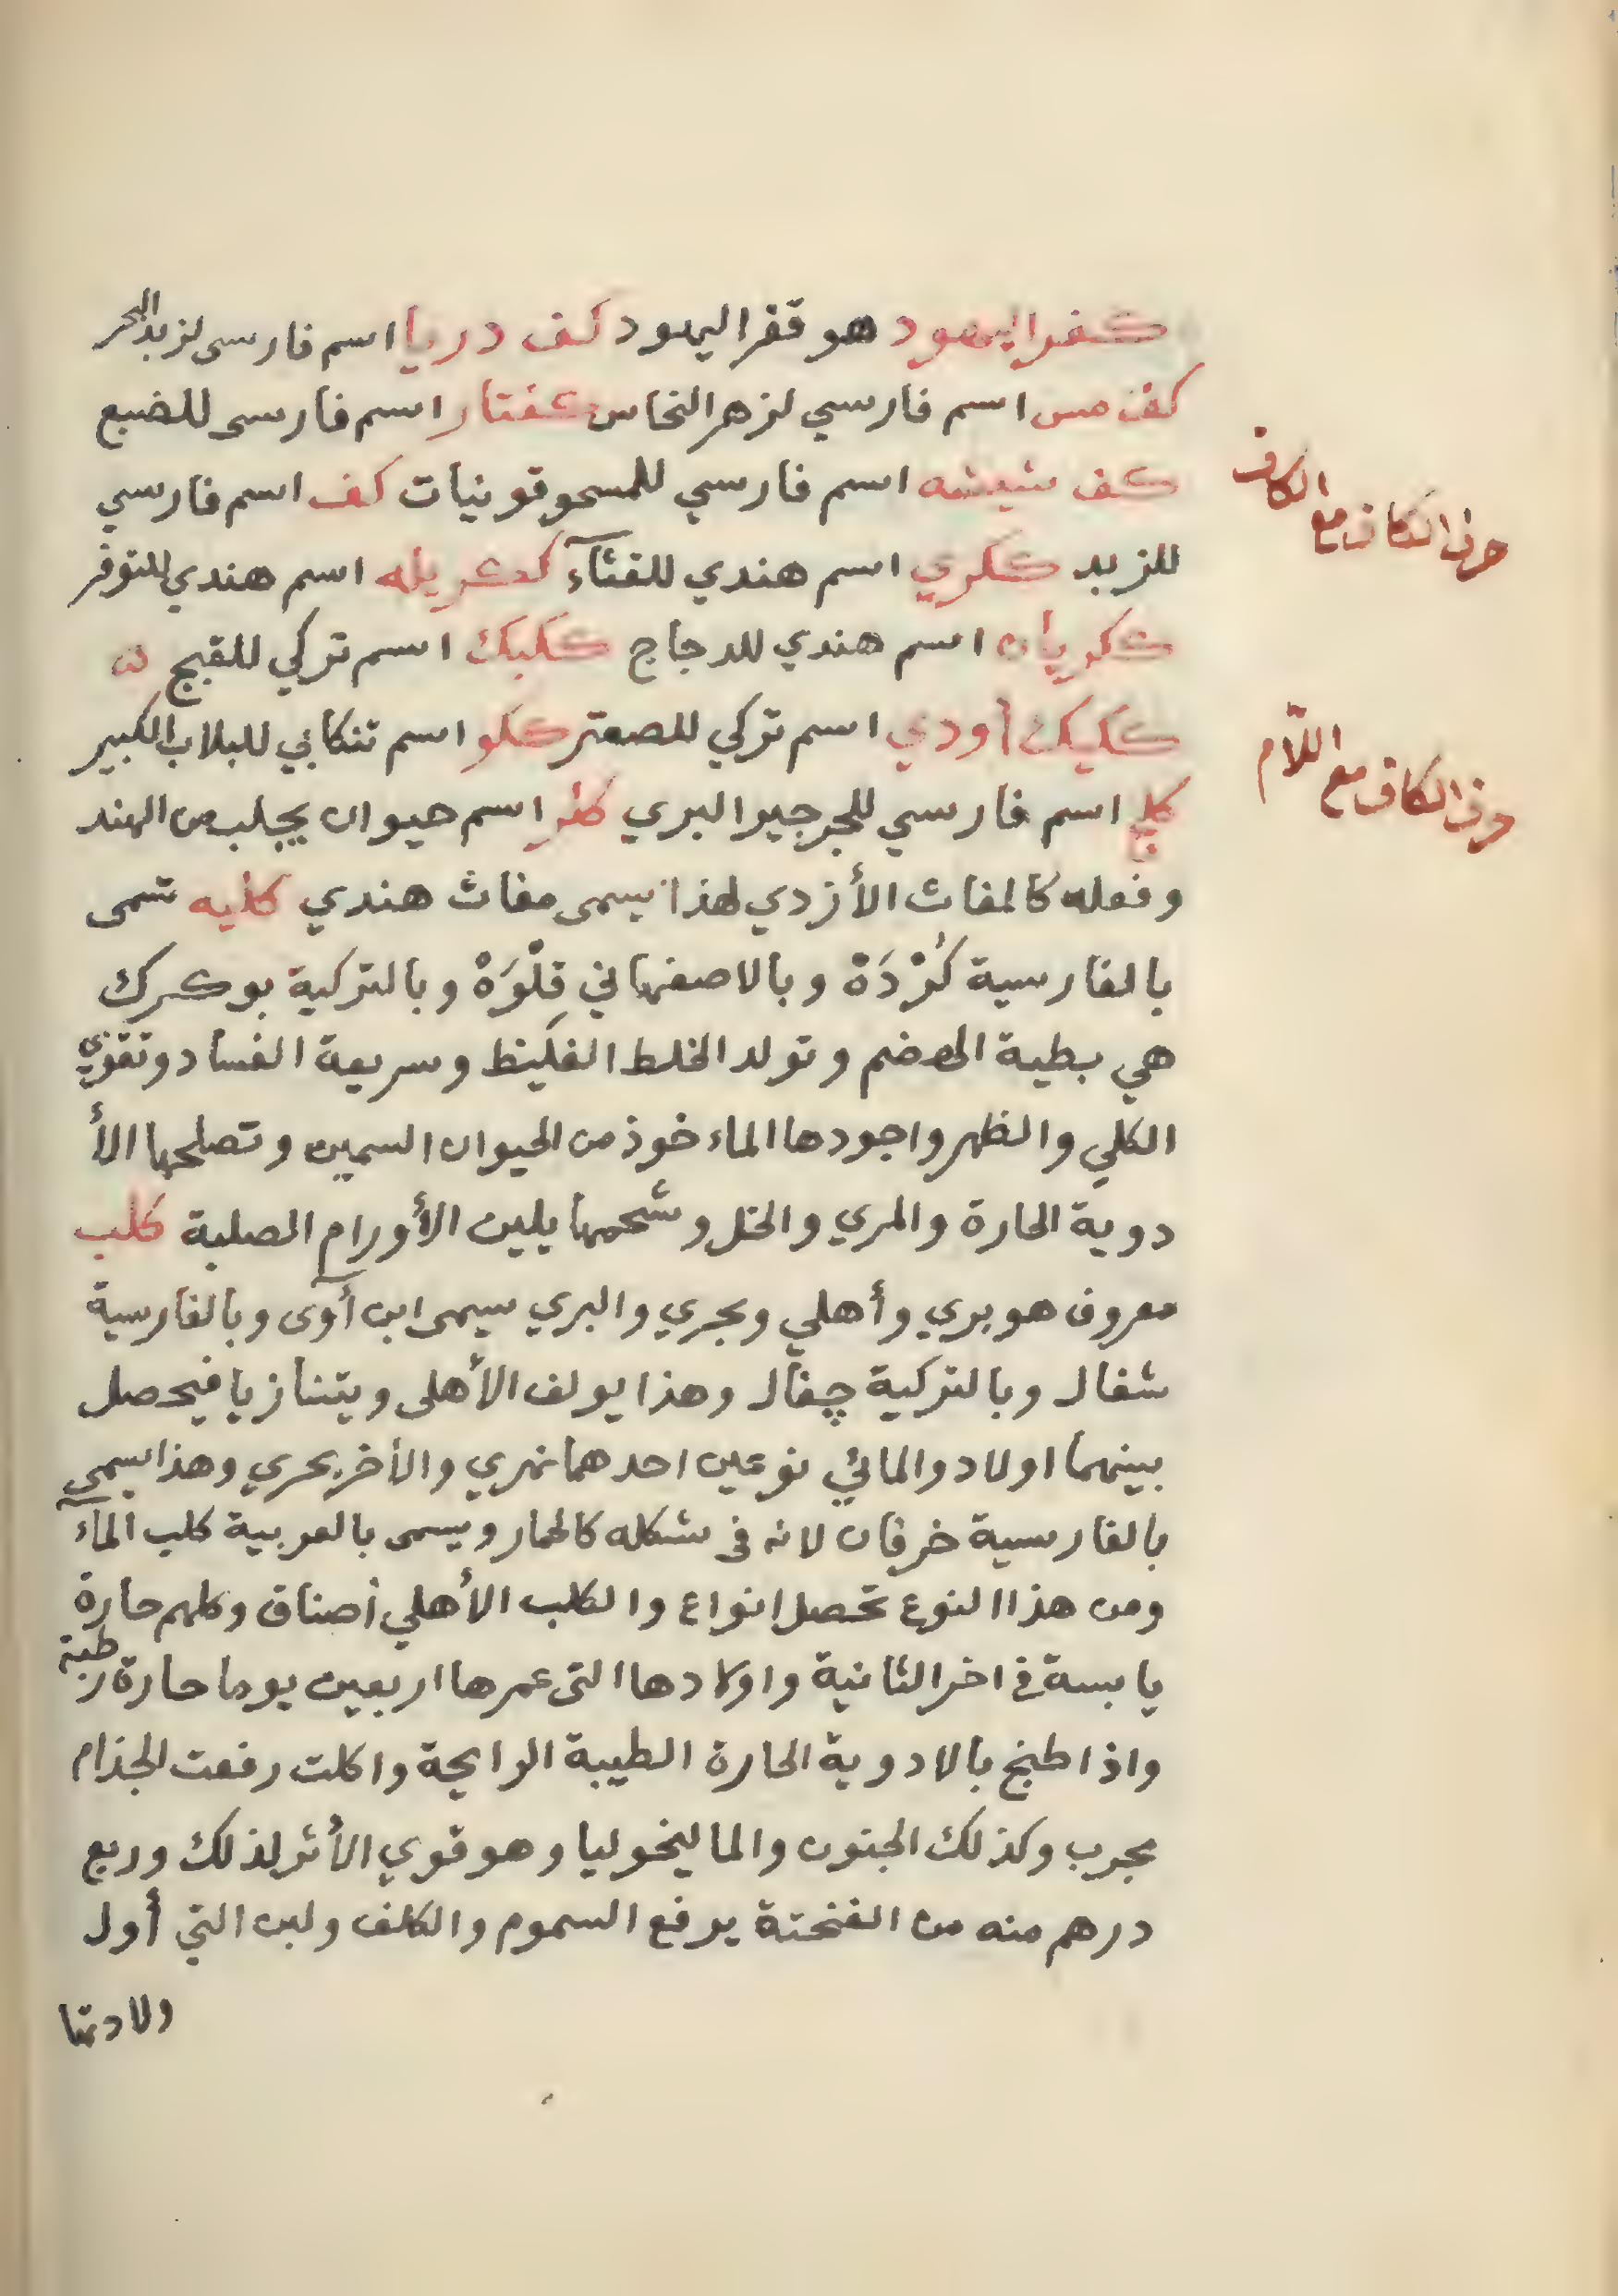 كفر اليهود هو قفر اليهود كف دريا اسم فارسي لزبد البحر
كف مس اسم فارسي لزهر النحاس كفتار اسم فارسي للضبع
كف شيشه اسم فارسي للمسحوقونيات كف اسم فارسي
حرف الكاف مع الكاف
للزبد ككري اسم هندي للقثآء اسم هندي
ككريان اسم هندي للدجاج ككبك اسم تركي للقبج
ككيك أودي اسم تركي للصعتر ككو اسم تنكابني للبلاب الكبير
حرف الكاف مع اللّام
كلج اسم فارسي للجرجير البري اسم حيوان يجلب من الهند
وفعله كالمغاث الأزدي لهذا يسمى مغاث هندي كليه تسمى
بالفارسية كُرْدَهْ وبالاصفهاني قِلْوَهْ وبالتركية بوكرك
هي بطية الهضم وتولد الخلط الغليظ وسريعة الفساد وتقوي
الكلي والظهر واجودها الماءخوذ من الحيوان السمين وتصلحها الأ
دوية الحارة والمري والخل وشحمها يلين الأورام الصلبة كلب
معروف هو بري وأهلي وبحري والبري سيمى ابن أوى وبالفارسية
شغال وبالتركية چغال وهذا يولف الأهلى ويتنازيا فيحصل
بينهما اولاد والمائي نوعين احدهما نهري والأخر بحري وهذا يسمى
بالفارسية خرقان لانه فى شكله كالحمار ويسمى بالعربية كلب المآء
ومن هذا النوع تحصل انواع والكلب الأهلي أصناف وكلهم حارة
يابسة في اخر الثانية واولادها التى عمرها اربعين يوما حارة رطبة
واذا طبخ بالادوية الحارة الطيبة الرايحة واكلت رفعت الجذام
مجرب وكذلك الجنون والماليخوليا وهو قوي الأثر لذلك وربع
درهم منه من الفنحتة يرفع السموم والكلف ولبن التي أول
ولادتها